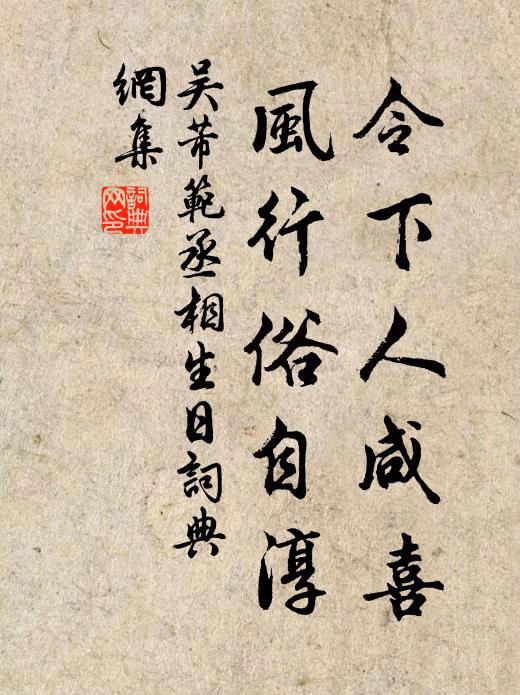 令下人咸喜
風行俗自淳
吴芾範丞相生日詞典
網集
詞典
网印